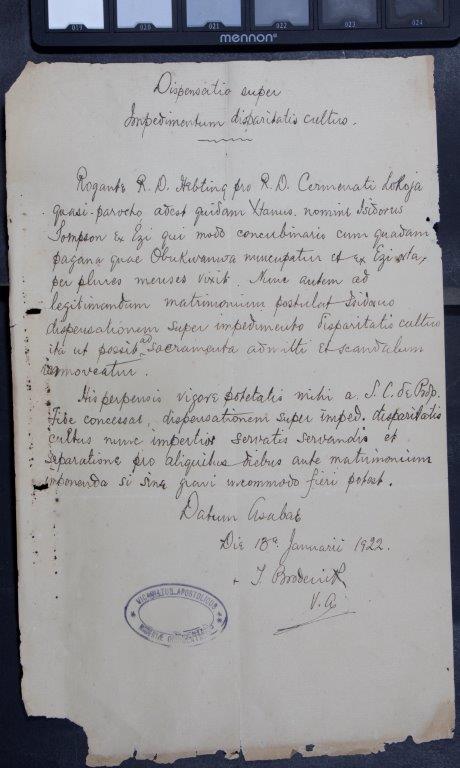 019 020 021 022 023 024
mennon
Dispensatio super
Impedimentum disparitatis cultus.
Rogante R. D. Hebting pro R. D. Cermenati Lokoja
quasi-parocho adest quidam Xtanus. nomine Isidorus
Sompson ex Egi qui modo concubinario cum quadam
pagana quae Obukwanwa nuncupatur et ex Egi orta,
per plures menses vixit. Nunc autem ad
legitimandum matrimonium postulat Isidorus
dispensationem super impedimento disparitatis cultus
ita ut possit ad sacramenta admitti et scandalum
removeatur.
His perpensis vigore potetatis mihi a S. C. de Prop.
Fide concessae, dispensationem super imped. disparitatis
cultus nunc impertior servatis servandis et
separatione pro aliquibus diebus ante matrimonium
imponenda si sine gravi incommodo fieri potest.
Datum Asabae
Die 18a Januarii 1922.
+ T Broderick
V. A.
VICARIATUS APOSTOLICUS
NIGERIAE OCCIDENTALIS